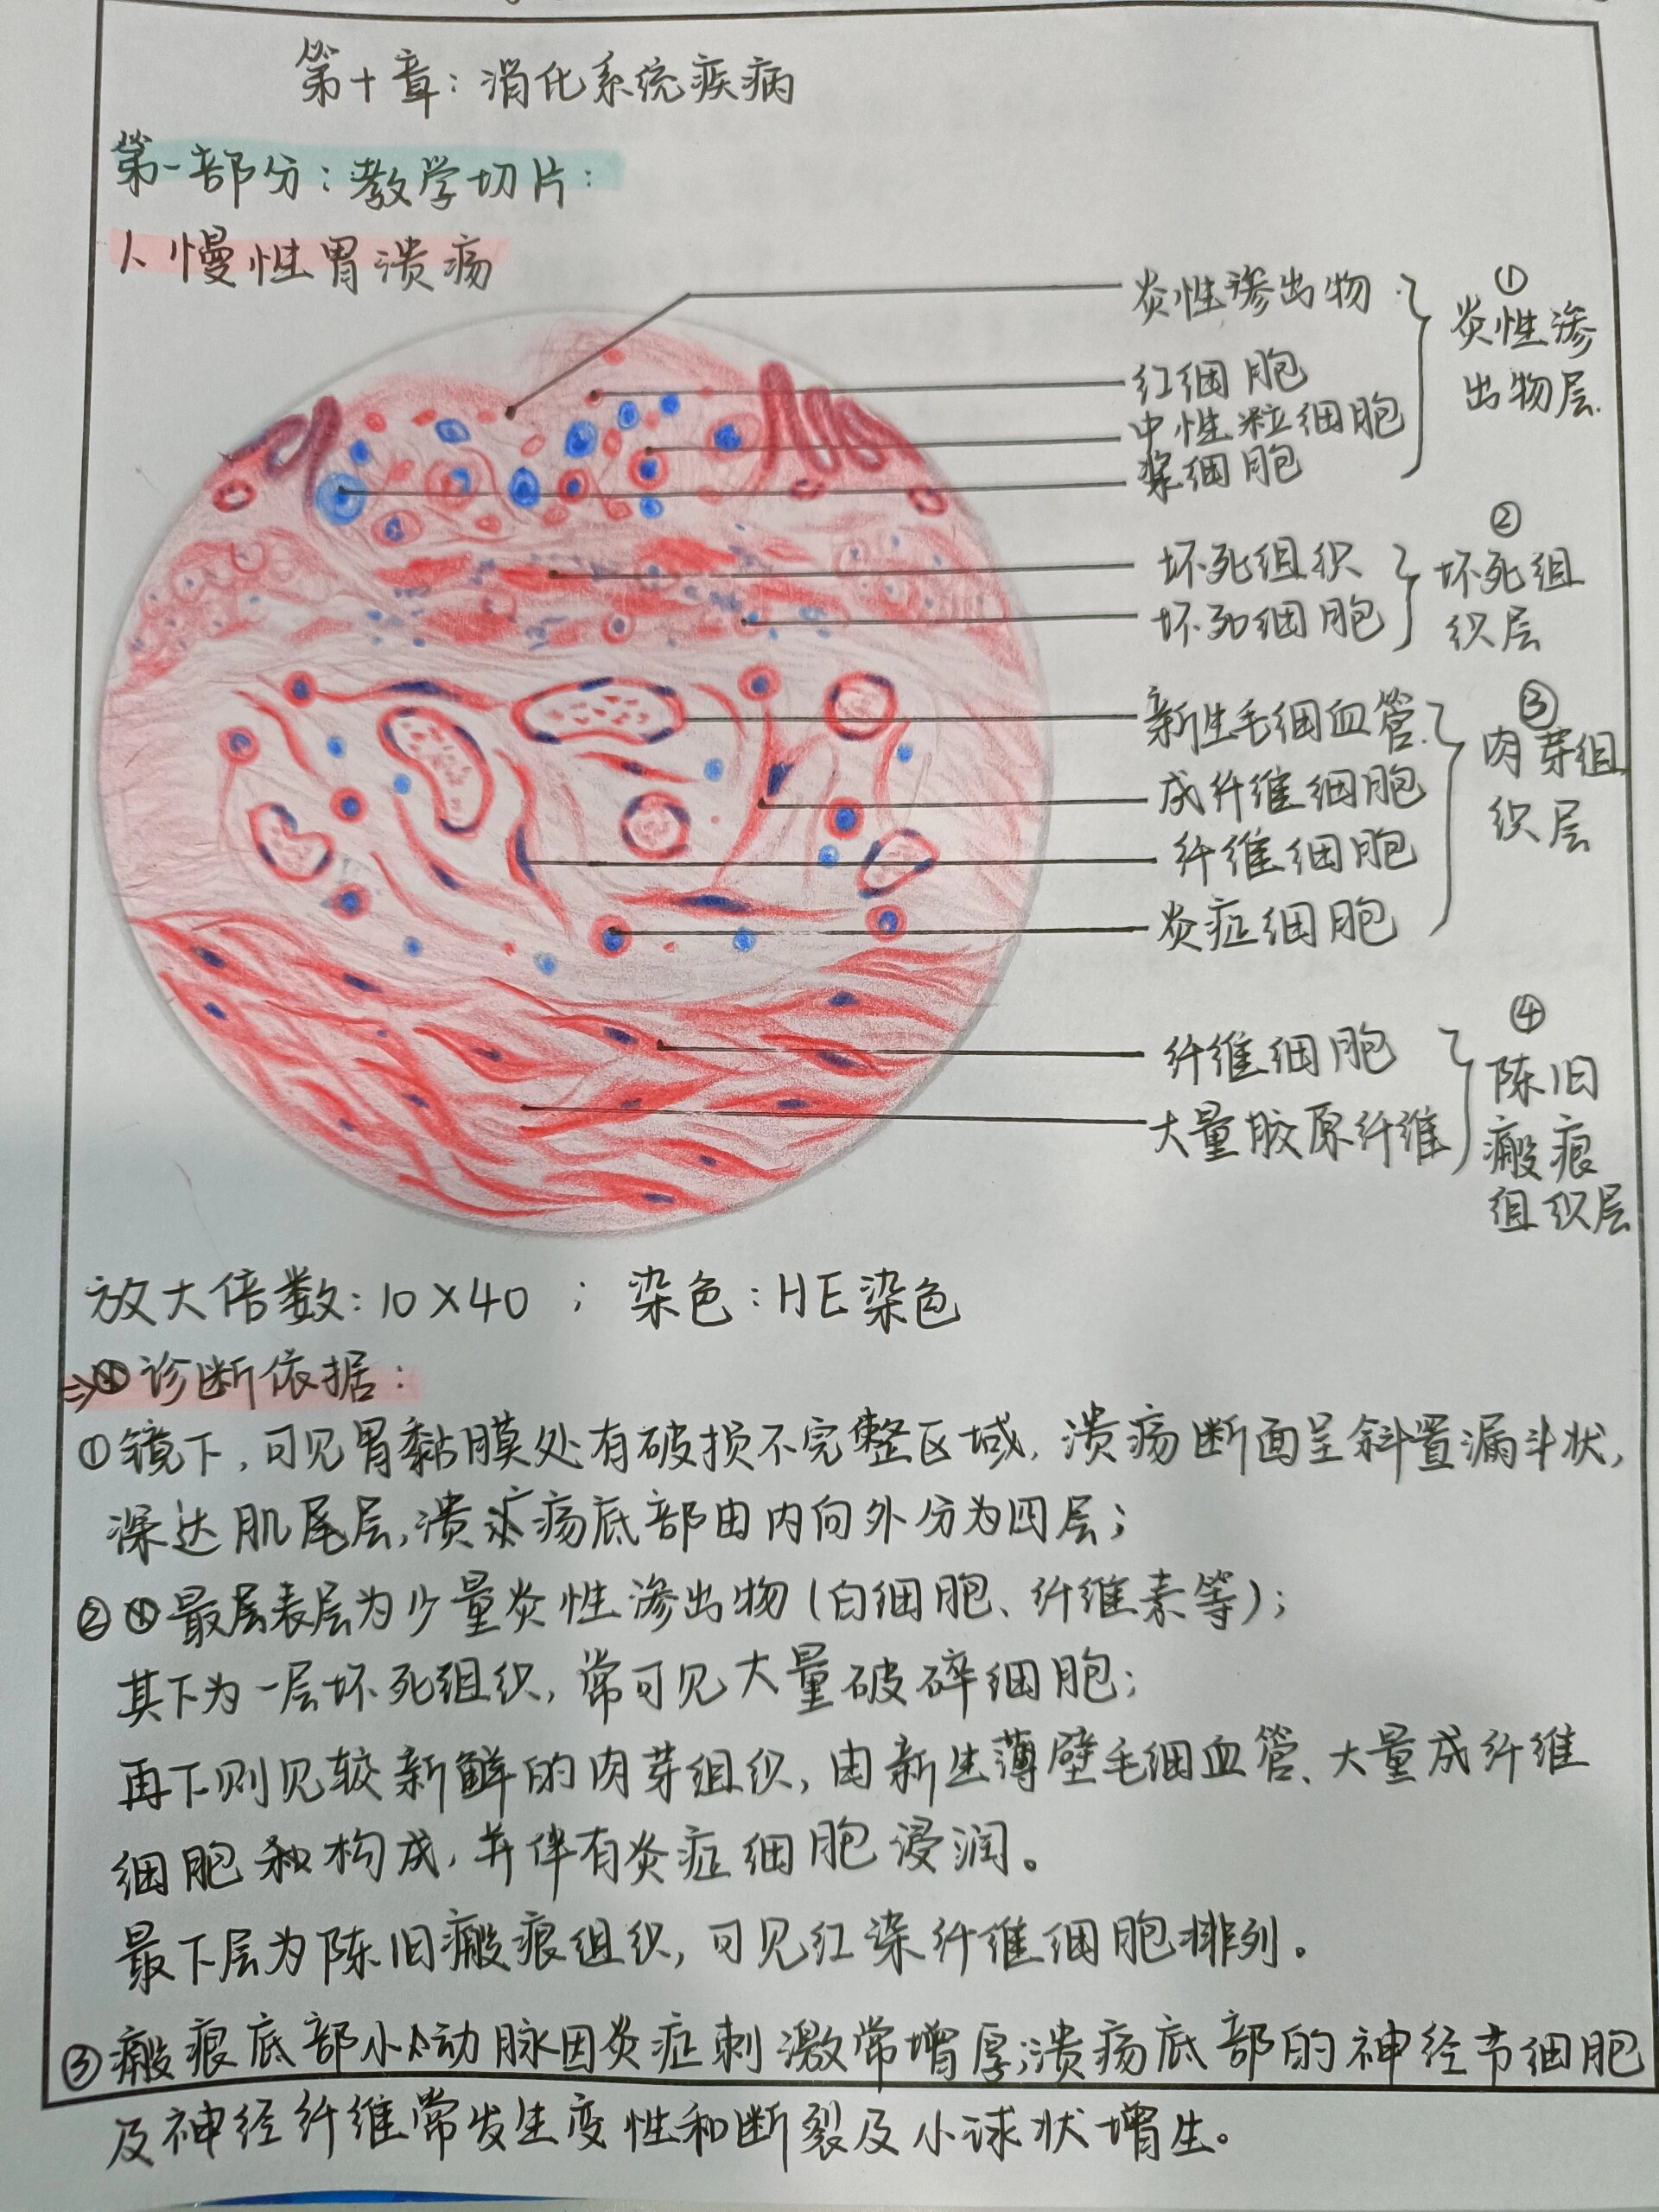 第十章：消化系统疾病
第一部分：教学切片：
1、慢性胃溃疡
炎性渗出物
红细胞
中性粒细胞
浆细胞
①
炎性渗
出物层.
坏死组织
坏死细胞
②
坏死组
织层
新生毛细血管
成纤维细胞
纤维细胞
炎症细胞
③
肉芽组
织层
纤维细胞
大量胶原纤维
④
陈旧
瘢痕
组织层
放大倍数：10×40 ； 染色：HE染色
诊断依据：
①镜下，可见胃黏膜处有破损不完整区域，溃疡断面呈斜置漏斗状，
深达肌尾层，溃疡底部由内向外分为四层；
②最层表层为少量炎性渗出物(白细胞、纤维素等)；
其下为一层坏死组织，常可见大量破碎细胞；
再下则见较新鲜的肉芽组织，由新生薄壁毛细血管、大量成纤维
细胞构成，并伴有炎症细胞浸润。
最下层为陈旧瘢痕组织，可见红染纤维细胞排列。
③瘢痕底部小动脉因炎症刺激常增厚；溃疡底部的神经节细胞
及神经纤维常发生变性和断裂及小球状增生。